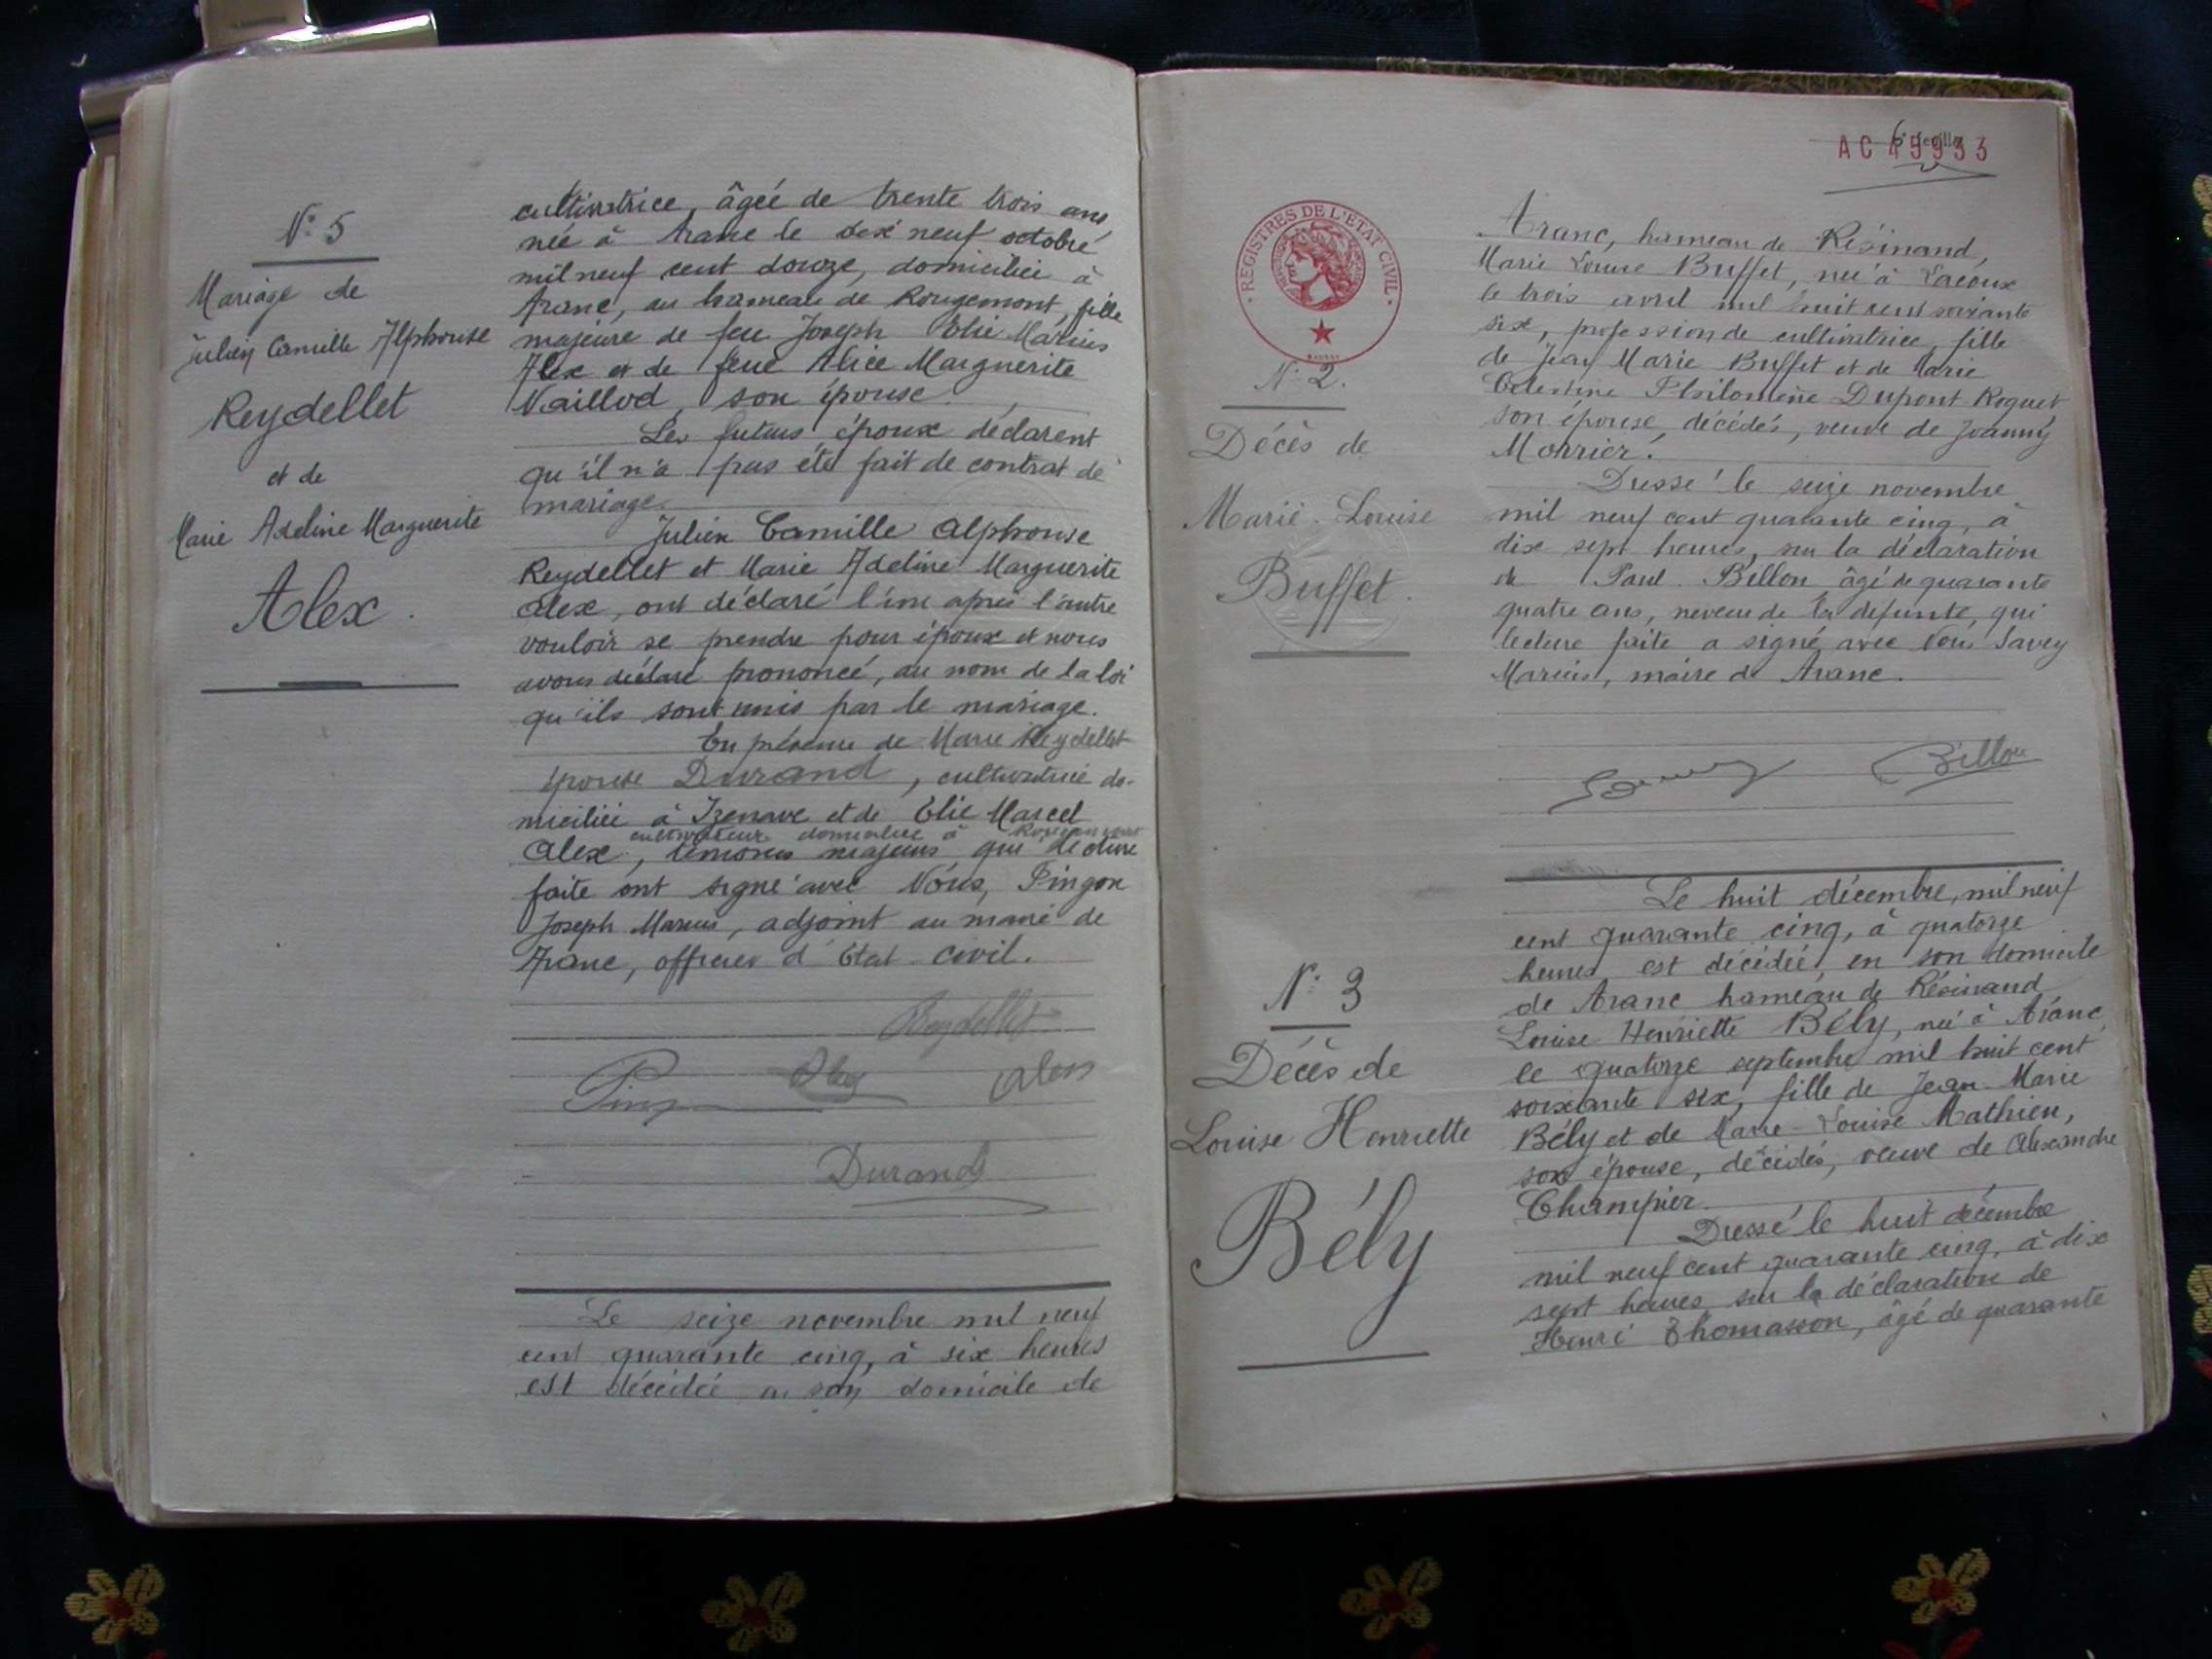 N° 5
Mariage de
Julien Camille Alphonse
Reydellet
et de
Marie Adeline Marguerite
Alex.
cultivatrice, âgée de trente trois ans
née à Aranc le dix neuf octobre
mil neuf cent douze, domiciliée à
Aranc, au hameau de Rougemont, fille
majeure de feu Joseph Elie Marius
Alex et de feue Alice Marguerite
Vaillod, son épouse.
Les futurs époux déclarent
qu'il n'a pas été fait de contrat de
mariage.
Julien Camille Alphonse
Reydellet et Marie Adeline Marguerite
Alex, ont déclaré l'un après l'autre
vouloir se prendre pour époux et nous
avons déclaré prononcé, au nom de la loi
qu'ils sont unis par le mariage.
En présence de Marie Reydellet
épouse Durand, cultivatrice do-
miciliée à Izenave et de Elie Marcel
cultivateur domicilié à Rougemont
Alex, témoins majeurs, qui lecture
faite ont signé avec Nous, Pingon
Joseph Marius, adjoint au maire de
Aranc, officier d'Etat civil.
Reydellet
Ping Alex Alex
Durand
Le seize novembre mil neuf
cent quarante cinq, à six heures
est décédée en son domicile de
6 feuillet
AC 45933
REGISTRES DE L'ETAT CIVIL
N° 2.
Décès de
Marie-Louise
Buffet.
Aranc, hameau de Résinand,
Marie Louise Buffet, née à Lacoux
le trois avril mil huit cent soixante
six, profession de cultivatrice, fille
de Jean Marie Buffet et de Marie
Célestine Philomène Dupont Roguet
son épouse, décédés, veuve de Joanny
Morrier.
Dressé le seize novembre
mil neuf cent quarante cinq, à
dix sept heures, sur la déclaration
de Paul Billon, âgé de quarante
quatre ans, neveu de la défunte, qui
lecture faite a signé avec Nous Savey
Marius, maire de Aranc.
Savey Billon
N° 3
Décès de
Louise Henriette
Bély
Le huit décembre, mil neuf
cent quarante cinq, à quatorze
heures, est décédée, en son domicile
de Aranc hameau de Résinand
Louise Henriette Bély, née à Aranc
le quatorze septembre mil huit cent
soixante six, fille de Jean-Marie
Bély et de Marie-Louise Mathieu,
son épouse, décédés, veuve de Alexandre
Champier.
Dressé le huit décembre
mil neuf cent quarante cinq, à dix
sept heures, sur la déclaration de
Henri Thomasson, âgé de quarante